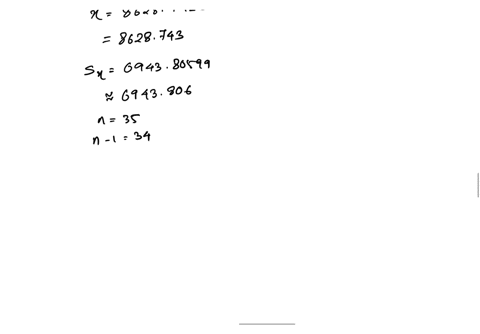 x =
= 8628.743
Sx = 6943.80599
≈ 6943.806
n = 35
n - 1 = 34